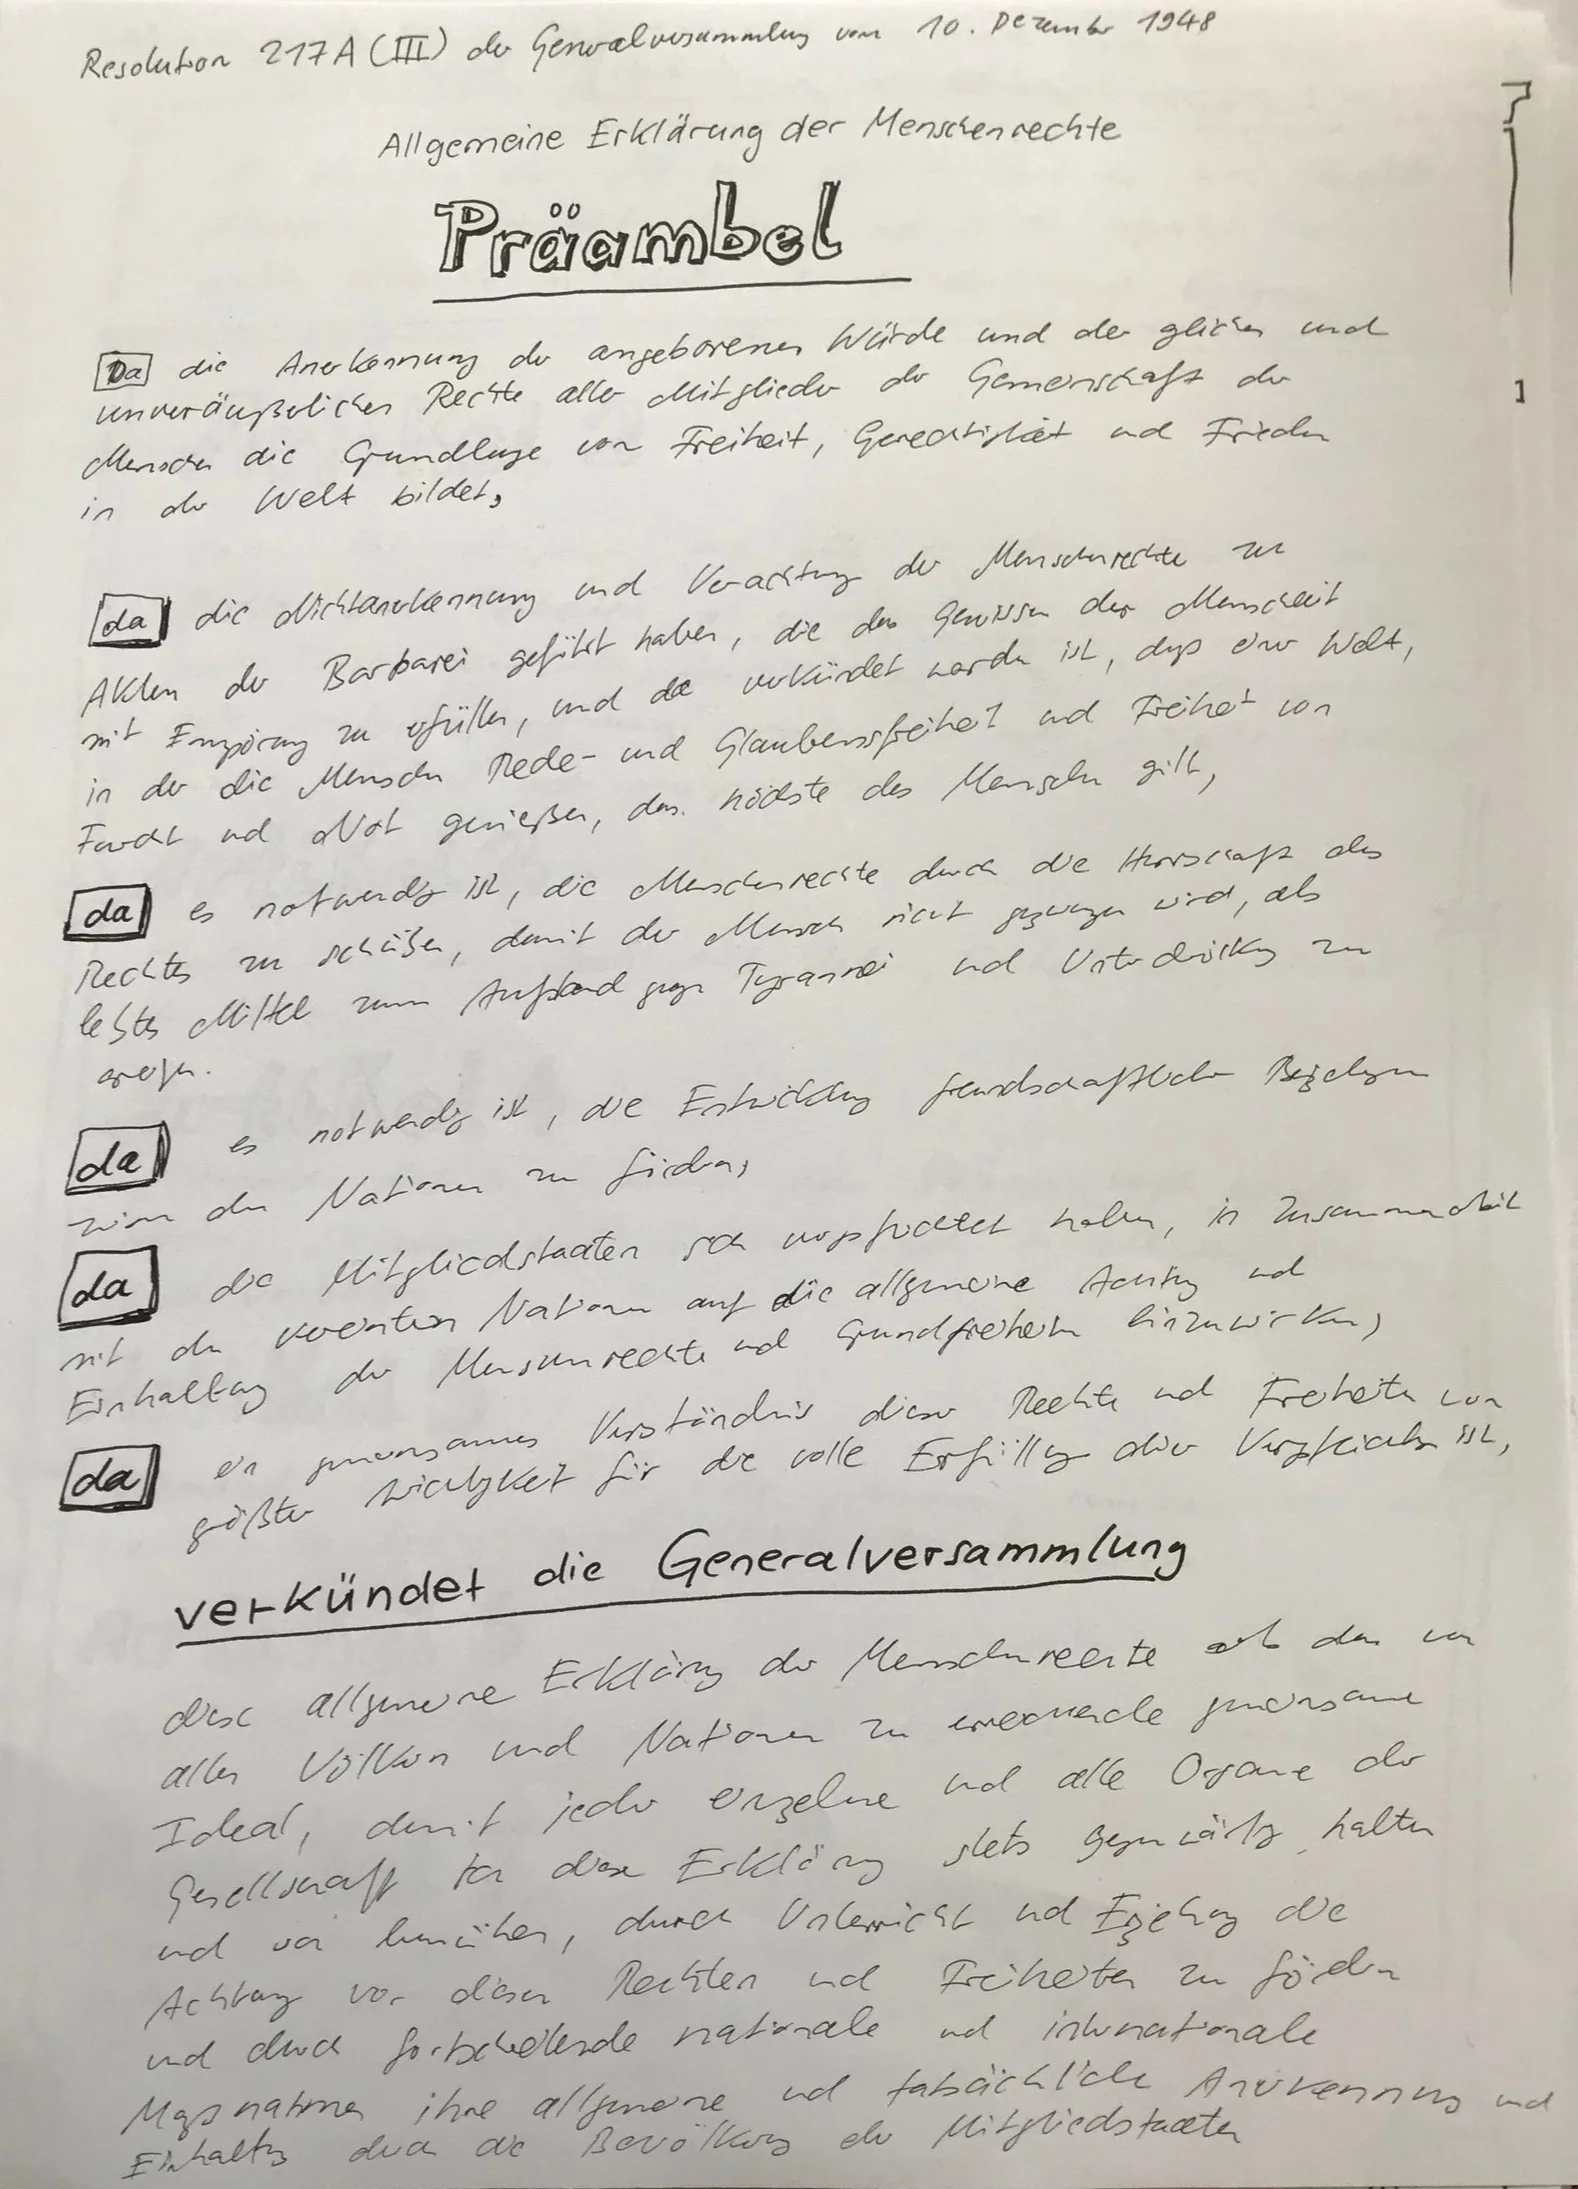 Resolution 217A (III) der Generalversammlung vom 10. Dezember 1948
Allgemeine Erklärung der Menschenrechte
Präambel
Da die Anerkennung der angeborenen Würde und der gleichen und
unveräußerlichen Rechte aller Mitglieder der Gemeinschaft der
Menschen die Grundlage von Freiheit, Gerechtigkeit und Frieden
in der Welt bildet,
da die Nichtanerkennung und Verachtung der Menschenrechte zu
Akten der Barbarei geführt haben, die das Gewissen der Menschheit
mit Empörung zu erfüllen, und da verkündet worden ist, daß einer Welt,
in der die Menschen Rede- und Glaubensfreiheit und Freiheit von
Furcht und Not genießen, das höchste des Menschen gilt,
da es notwendig ist, die Menschenrechte durch die Herrschaft des
Rechtes zu schützen, damit der Mensch nicht gezwungen wird, als
letztes Mittel zum Aufstand gegen Tyrannei und Unterdrückung zu
greifen.
da es notwendig ist, die Entwicklung freundschaftlicher Beziehungen
zwischen den Nationen zu fördern,
da die Mitgliedstaaten sich verpflichtet haben, in Zusammenarbeit
mit den Vereinten Nationen auf die allgemeine Achtung und
Einhaltung der Menschenrechte und Grundfreiheiten hinzuwirken,
da ein gemeinsames Verständnis dieser Rechte und Freiheiten von
größter Wichtigkeit für die volle Erfüllung dieser Verpflichtung ist,
verkündet die Generalversammlung
diese allgemeine Erklärung der Menschenrechte als das von
allen Völkern und Nationen zu erreichende gemeinsame
Ideal, damit jeder einzelne und alle Organe der
Gesellschaft diese Erklärung stets gegenwärtig halten
und bemühen, durch Unterricht und Erziehung die
Achtung vor diesen Rechten und Freiheiten zu fördern
und durch fortschreitende nationale und internationale
Maßnahmen ihre allgemeine und tatsächliche Anerkennung und
Einhaltung durch die Bevölkerung der Mitgliedstaaten